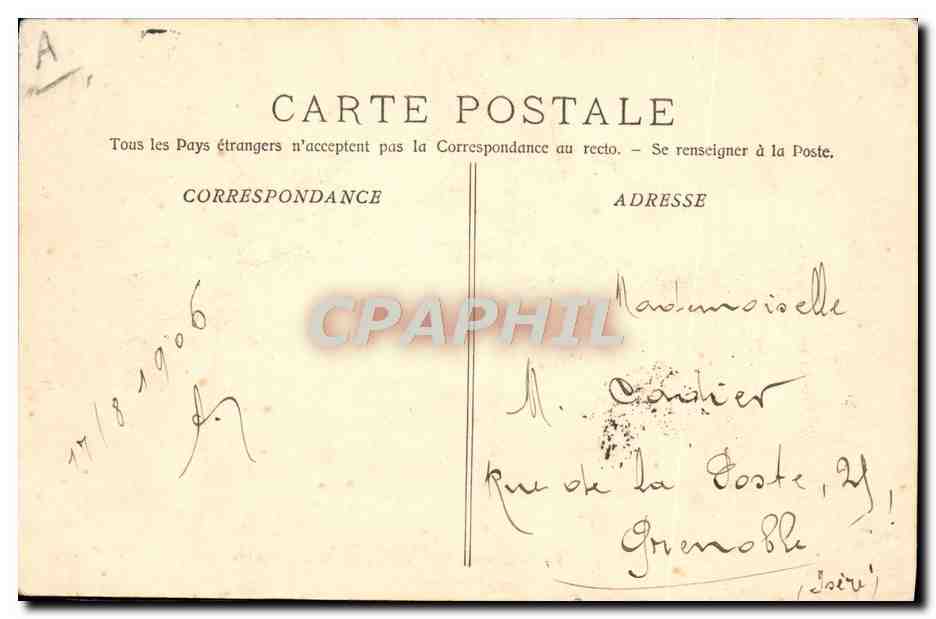 A
CARTE POSTALE
Tous les Pays étrangers n'acceptent pas la Correspondance au recto. — Se renseigner à la Poste.
CORRESPONDANCE
17/8 1906
ADRESSE
Mademoiselle
M. Cadier
Rue de la Poste,
Grenoble
(Isère)
CPAPHIL